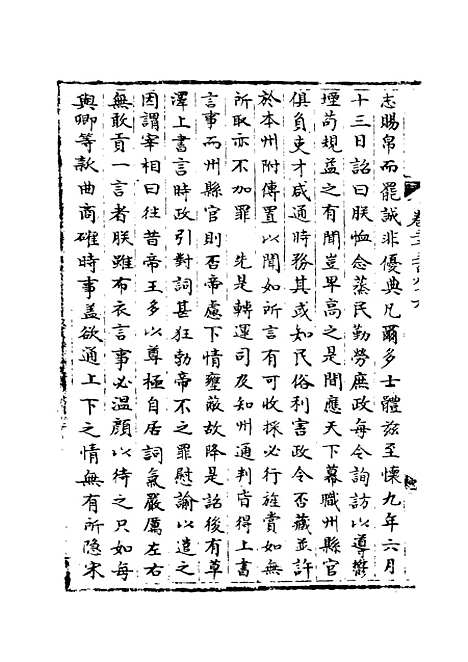 志賜帛而罷誠非優典凡爾多士體茲至懷九年六月
十三日詔曰朕恤念蒸民勤勞庶政每令詢訪以導鬱
堙苟規益之有聞豈畢高之是間應天下幕職州縣官
俱負吏才咸通時務其或知民俗利害政令否臧並許
於本州附傳置以聞如所言有可收採必行旌賞如無
所取亦不加罪　先是轉運司及知州通判皆得上書
言事而州縣官則否帝慮下情壅蔽故降是詔後有草
澤上書言時政引對詞甚狂勃帝不之罪慰諭以遣之
因謂宰相曰往昔帝王多以尊極自居詞氣嚴厲左右
無敢貢一言者朕雖布衣言事必溫顏以待之只如每
與卿等款曲商確時事蓋欲通上下之情無有所隱宋